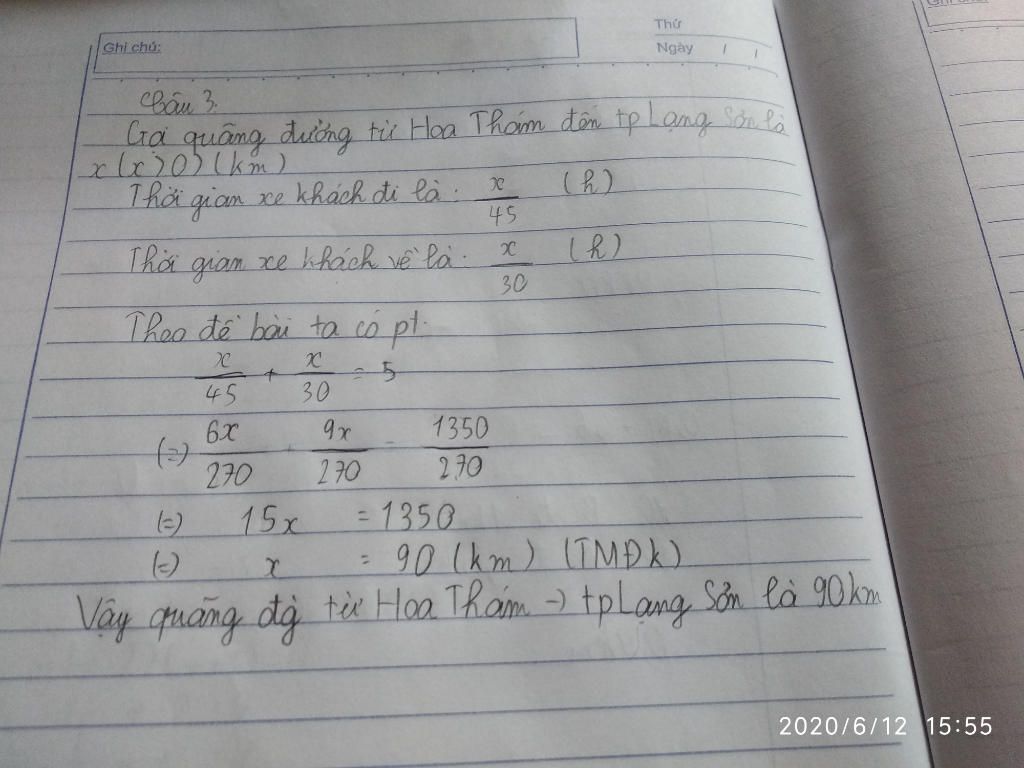 Thứ
Ghi chú:
Ngày / /
Câu 3.
Gọi quãng đường từ Hoa Thám đến tp Lạng Sơn là
x (x > 0) (km)
Thời gian xe khách đi là: x/45 (h)
Thời gian xe khách về là: x/30 (h)
Theo đề bài ta có pt:
x/45 + x/30 = 5
(=) 6x/270 + 9x/270 = 1350/270
(=) 15x = 1350
(=) x = 90 (km) (TMĐk)
Vậy quãng đg từ Hoa Thám -> tp Lạng Sơn là 90 km
2020/6/12 15:55